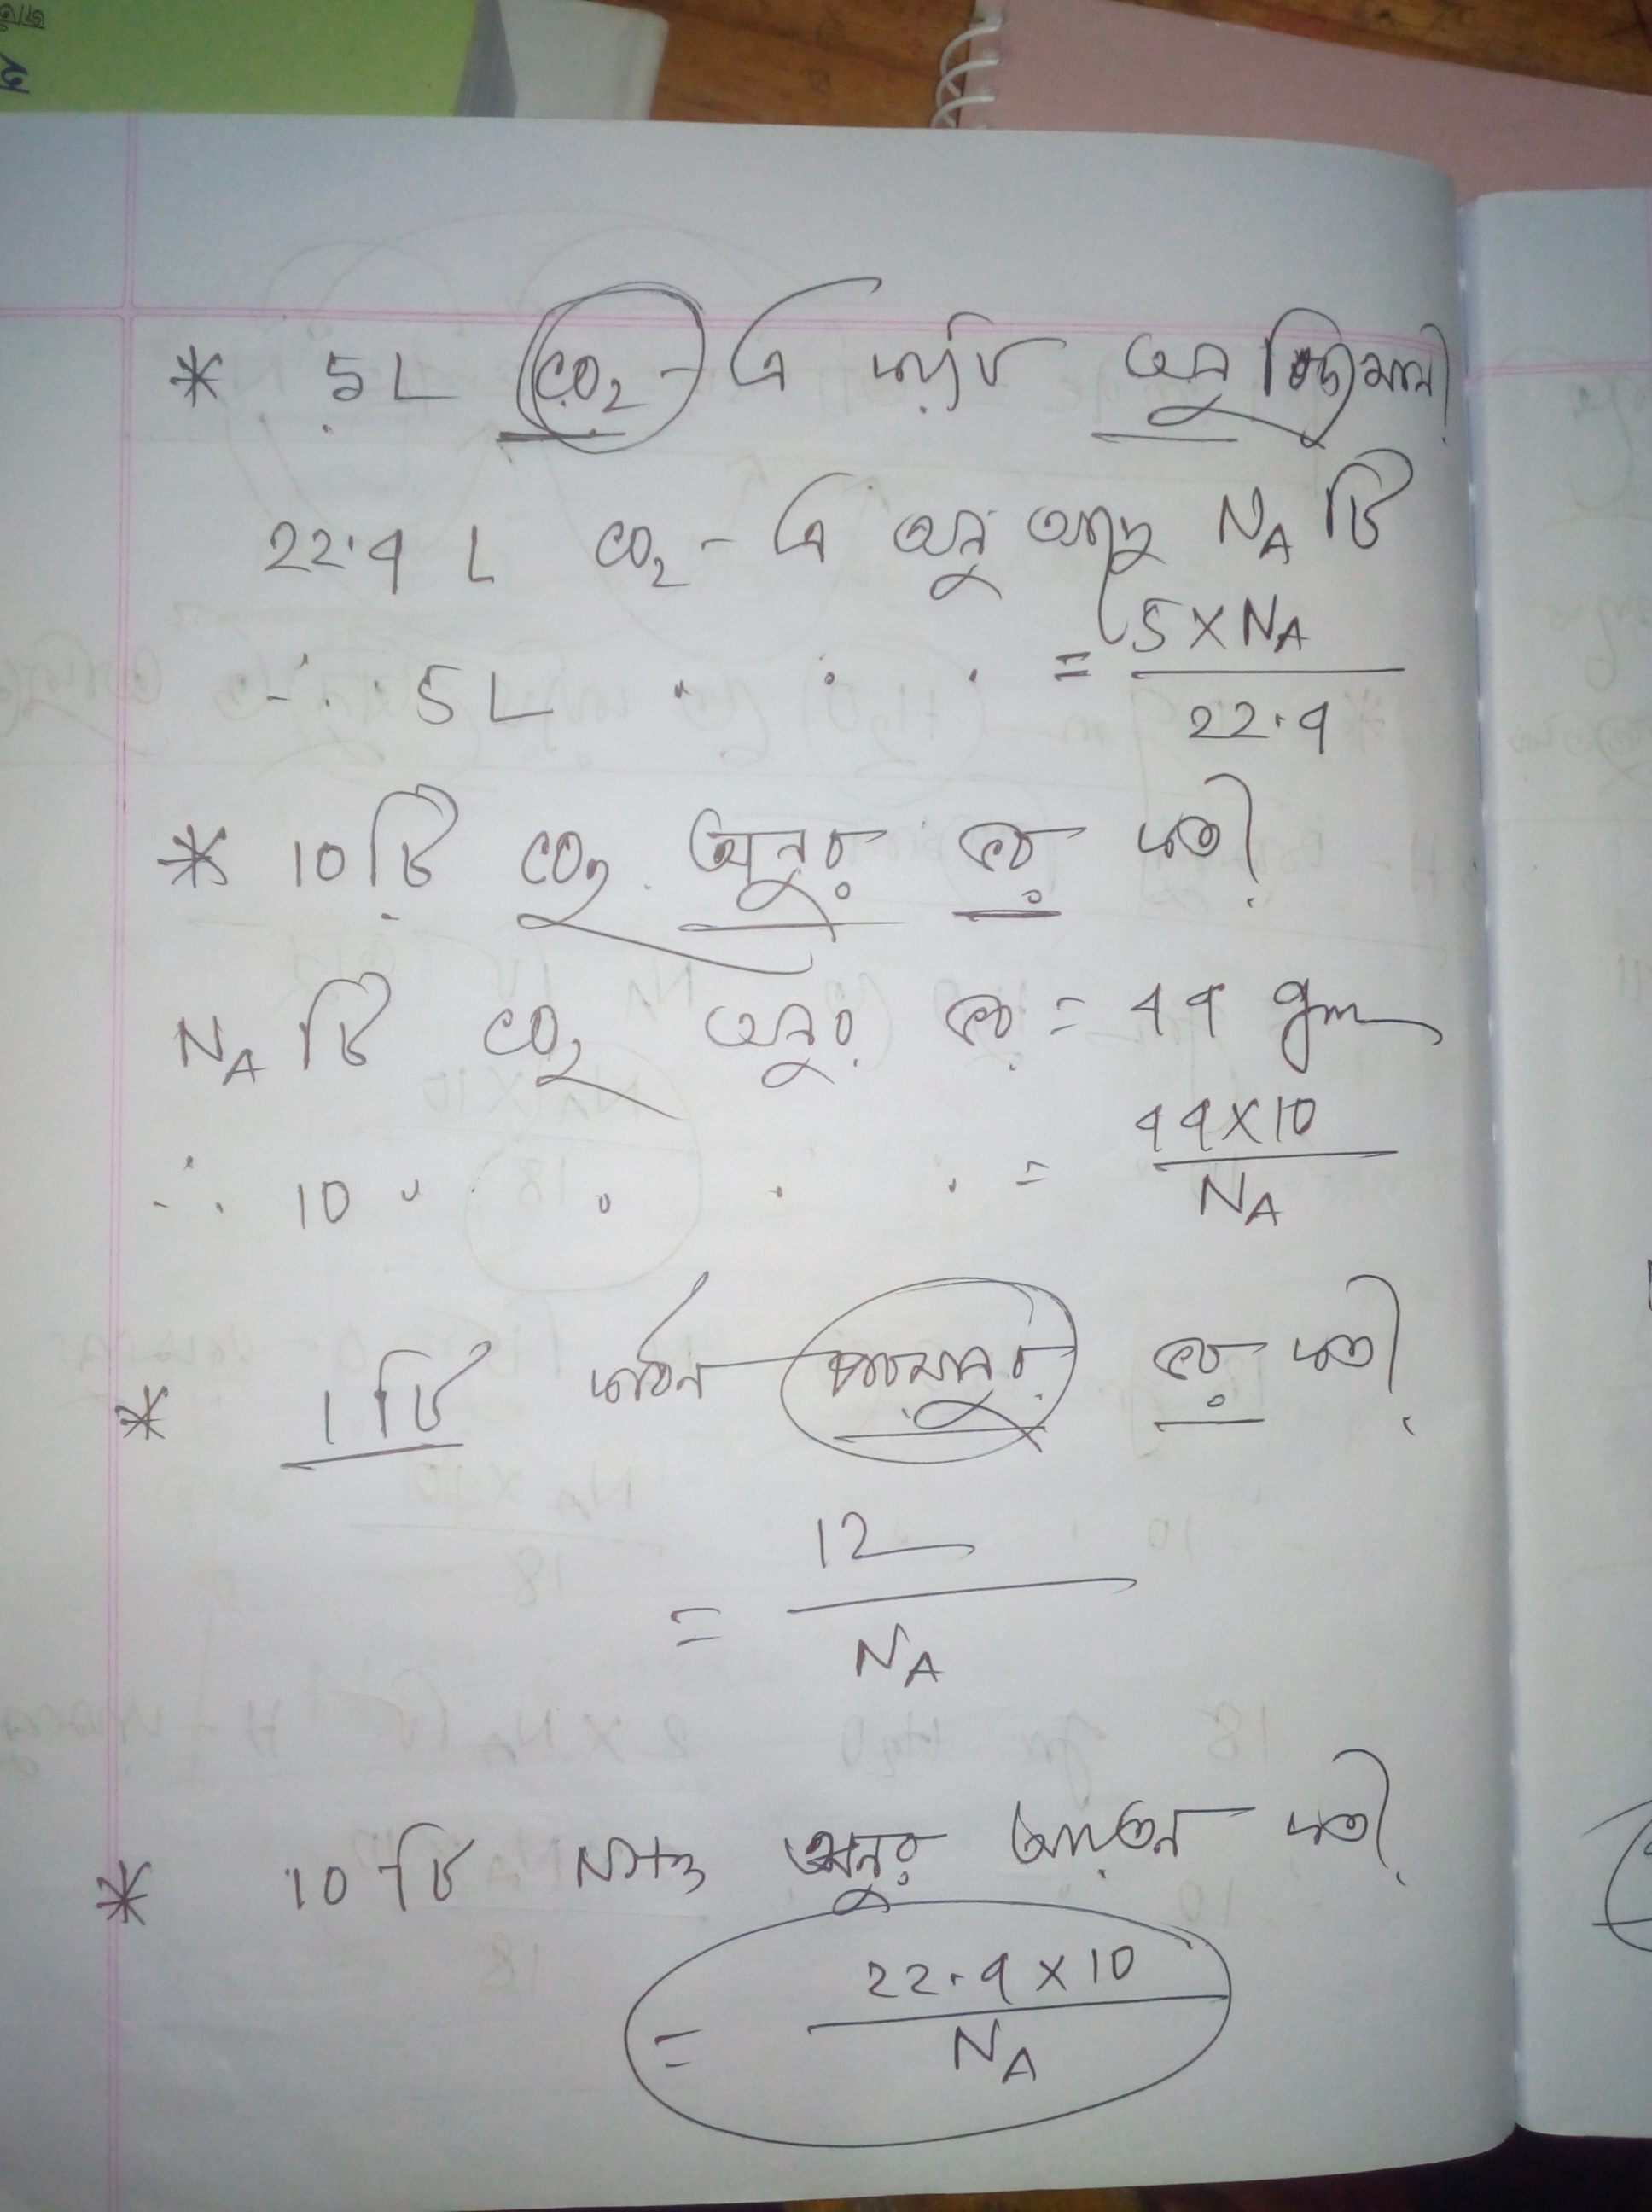 * 5L CO₂-এ কয়টি অনু বিদ্যমান?
22.4 L CO₂-এ অনু আছে N_A টি
∴ 5L " " " = 5×N_A / 22.4
* 10 টি CO₂ অনুর ভর কত?
N_A টি CO₂ অনুর ভর = 44 gm
∴ 10 " " " " = 44×10 / N_A
* 1 টি কার্বন পরমানুর ভর কত?
= 12 / N_A
* 10 টি NH₃ অনুর আয়তন কত?
= 22.4×10 / N_A